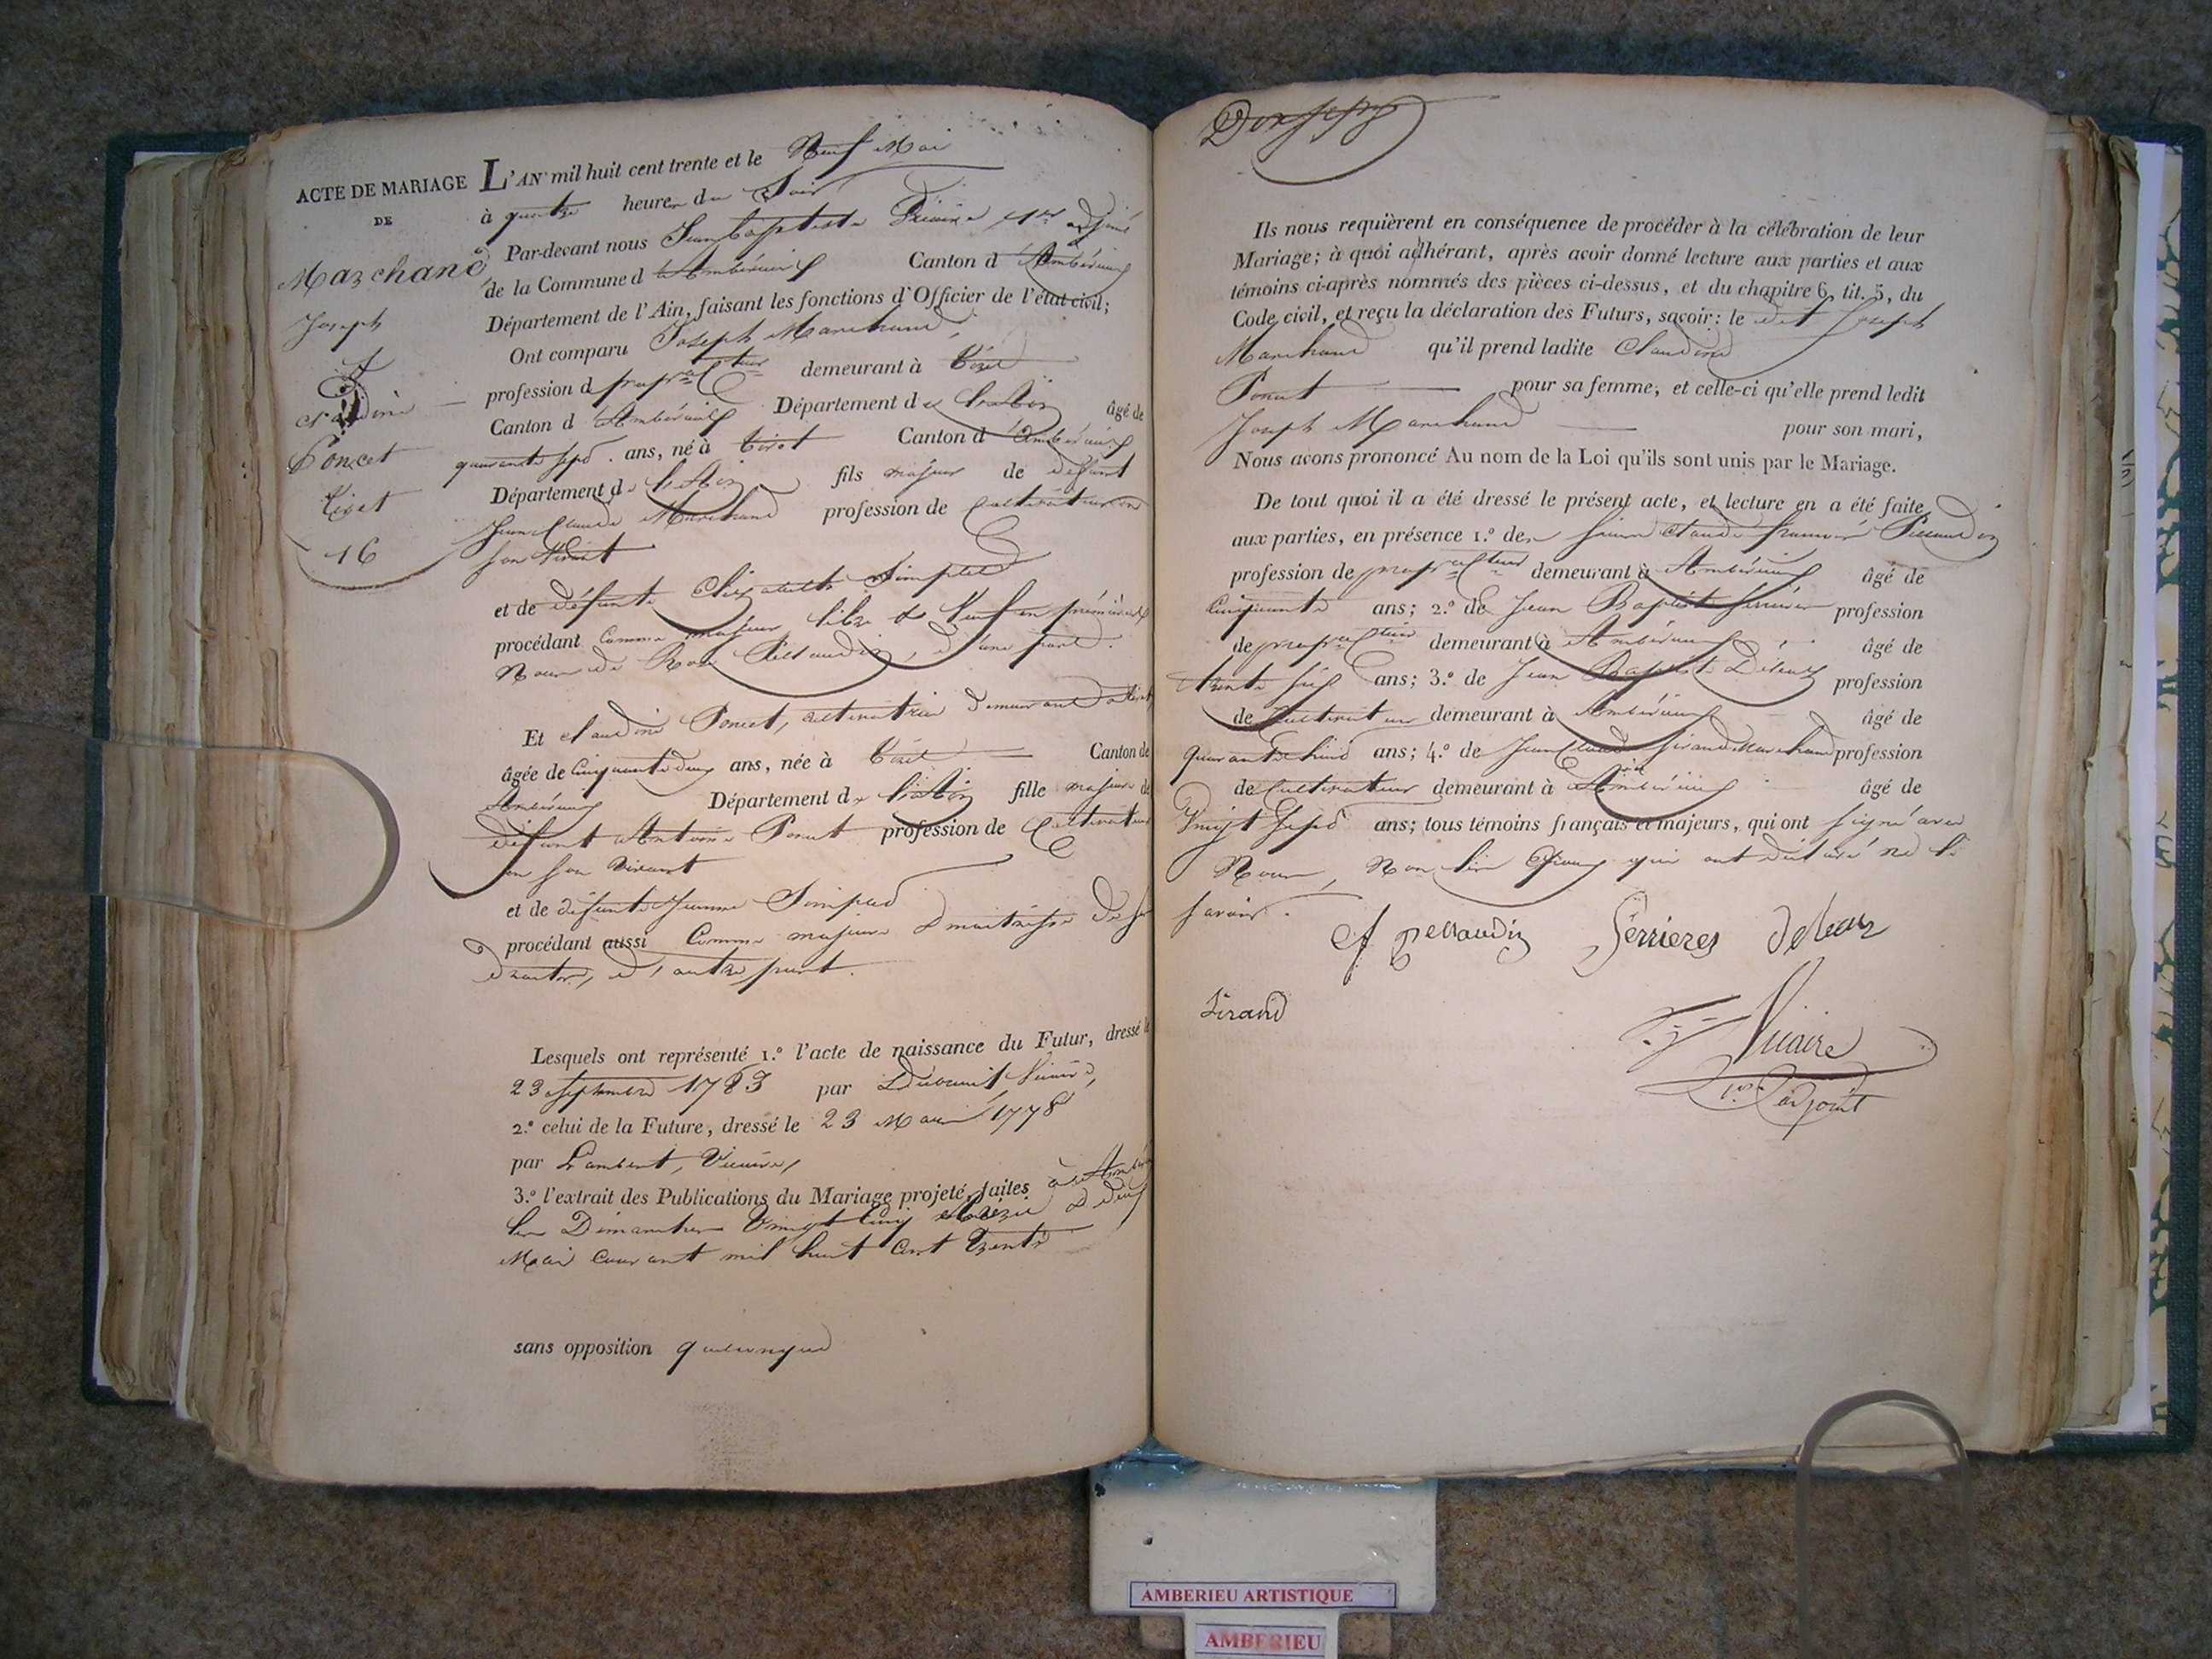 ACTE DE MARIAGE
DE
Marchand
Joseph
&
Claudine
Poncet
Tiret
16
L'AN mil huit cent trente et le Neuf Mai
à quatre heures du Soir
Par-devant nous Jean baptiste Vicaire 1er adjoint
de la Commune d'Ambérieux Canton d'Ambérieux
Département de l'Ain, faisant les fonctions d'Officier de l'état civil;
Ont comparu Joseph Marchand
profession de demeurant à Tiret
Canton d'Ambérieux Département de l'Ain âgé de
quarante sept ans, né à Tiret Canton d'Ambérieux
Département de l'Ain fils majeur de défunt
Jean Claude Marchand profession de Cultivateur en
son vivant
et de défunte Elizabeth Simplet
procédant comme majeur libre & Veuf en premières
Noces de Rose, d'une part.
Et claudine Poncet, cultivatrice demeurant à Tiret
âgée de Cinquante deux ans, née à Tiret Canton de
Ambérieux Département de l'Ain fille majeure de
défunt Antoine Poncet profession de Cultivateur
en son vivant
et de défunte Jeanne
procédant aussi Comme majeure & maitresse de ses
droits, d'autre part.
Lesquels ont représenté 1.º l'acte de naissance du Futur, dressé le
23 septembre 1783 par Vicaire,
2.º celui de la Future, dressé le 23 Mars 1778
par Lambert, Vicaire,
3.º l'extrait des Publications du Mariage projeté, faites à Ambérieux
les Dimanches Vingt Cinq & deux
Mai courant mil huit cent trente
sans opposition quelconque
Ils nous requièrent en conséquence de procéder à la célébration de leur
Mariage; à quoi adhérant, après avoir donné lecture aux parties et aux
témoins ci-après nommés des pièces ci-dessus, et du chapitre 6, tit. 5, du
Code civil, et reçu la déclaration des Futurs, savoir: le dit Joseph
Marchand qu'il prend ladite Claudine
Poncet pour sa femme, et celle-ci qu'elle prend ledit
Joseph Marchand pour son mari,
Nous avons prononcé Au nom de la Loi qu'ils sont unis par le Mariage.
De tout quoi il a été dressé le présent acte, et lecture en a été faite
aux parties, en présence 1.º des sieurs Claude françois
profession de demeurant à Ambérieux âgé de
Cinquante ans; 2.º de Jean Baptiste profession
de demeurant à Ambérieux âgé de
trente six ans; 3.º de Jean Baptiste profession
de Cultivateur demeurant à Ambérieux âgé de
quarante huit ans; 4.º de Jean Claude Sirand Marchand profession
de Cultivateur demeurant à Ambérieux âgé de
Vingt Sept ans; tous témoins français et majeurs, qui ont signé avec
Nous, Non les Epoux qui ont déclaré ne le
savoir.
Serrieres
Sirand
Vicaire
1er adjoint
AMBERIEU ARTISTIQUE
AMBERIEU